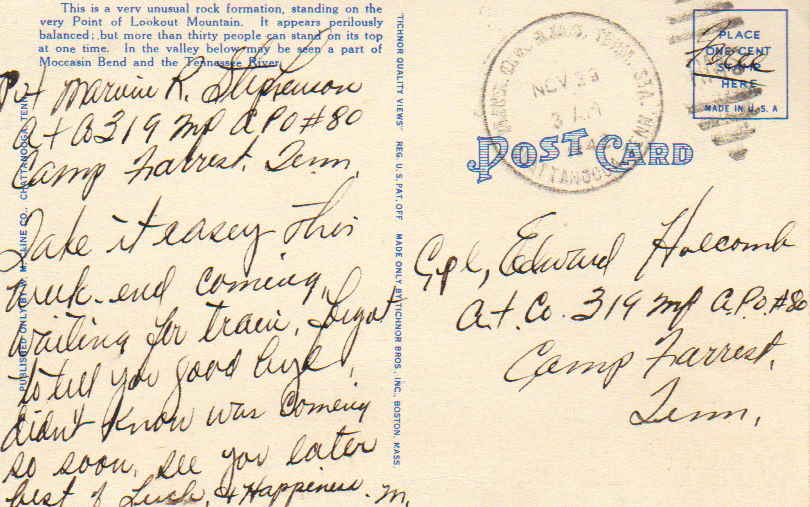 This is a very unusual rock formation, standing on the
very Point of Lookout Mountain. It appears perilously
balanced; but more than thirty people can stand on its top
at one time. In the valley below may be seen a part of
Moccasin Bend and the Tennessee River.
Pvt Marvin R. Stephenson
At Co 319 Inf A.P.O #80
Camp Farrest. Tenn.
Take it easey this
week-end coming,
waiting for train, forgot
to tell you good bye,
didn't know was coming
so soon, see you later
best of Luck, & Happiness. M.
PUBLISHED ONLY BY W. M. CLINE CO., CHATTANOOGA, TENN.
"TICHNOR QUALITY VIEWS" REG. U. S. PAT. OFF. MADE ONLY BY TICHNOR BROS., INC., BOSTON, MASS.
NOV 23
3 AM
CHATTANOOGA TENN.
PLACE
ONE CENT
STAMP
HERE
MADE IN U. S. A
Free
POST CARD
Cpl, Edward Holcomb
A.t. Co. 319 Inf A.P.O. #80
Camp Farrest,
Tenn,